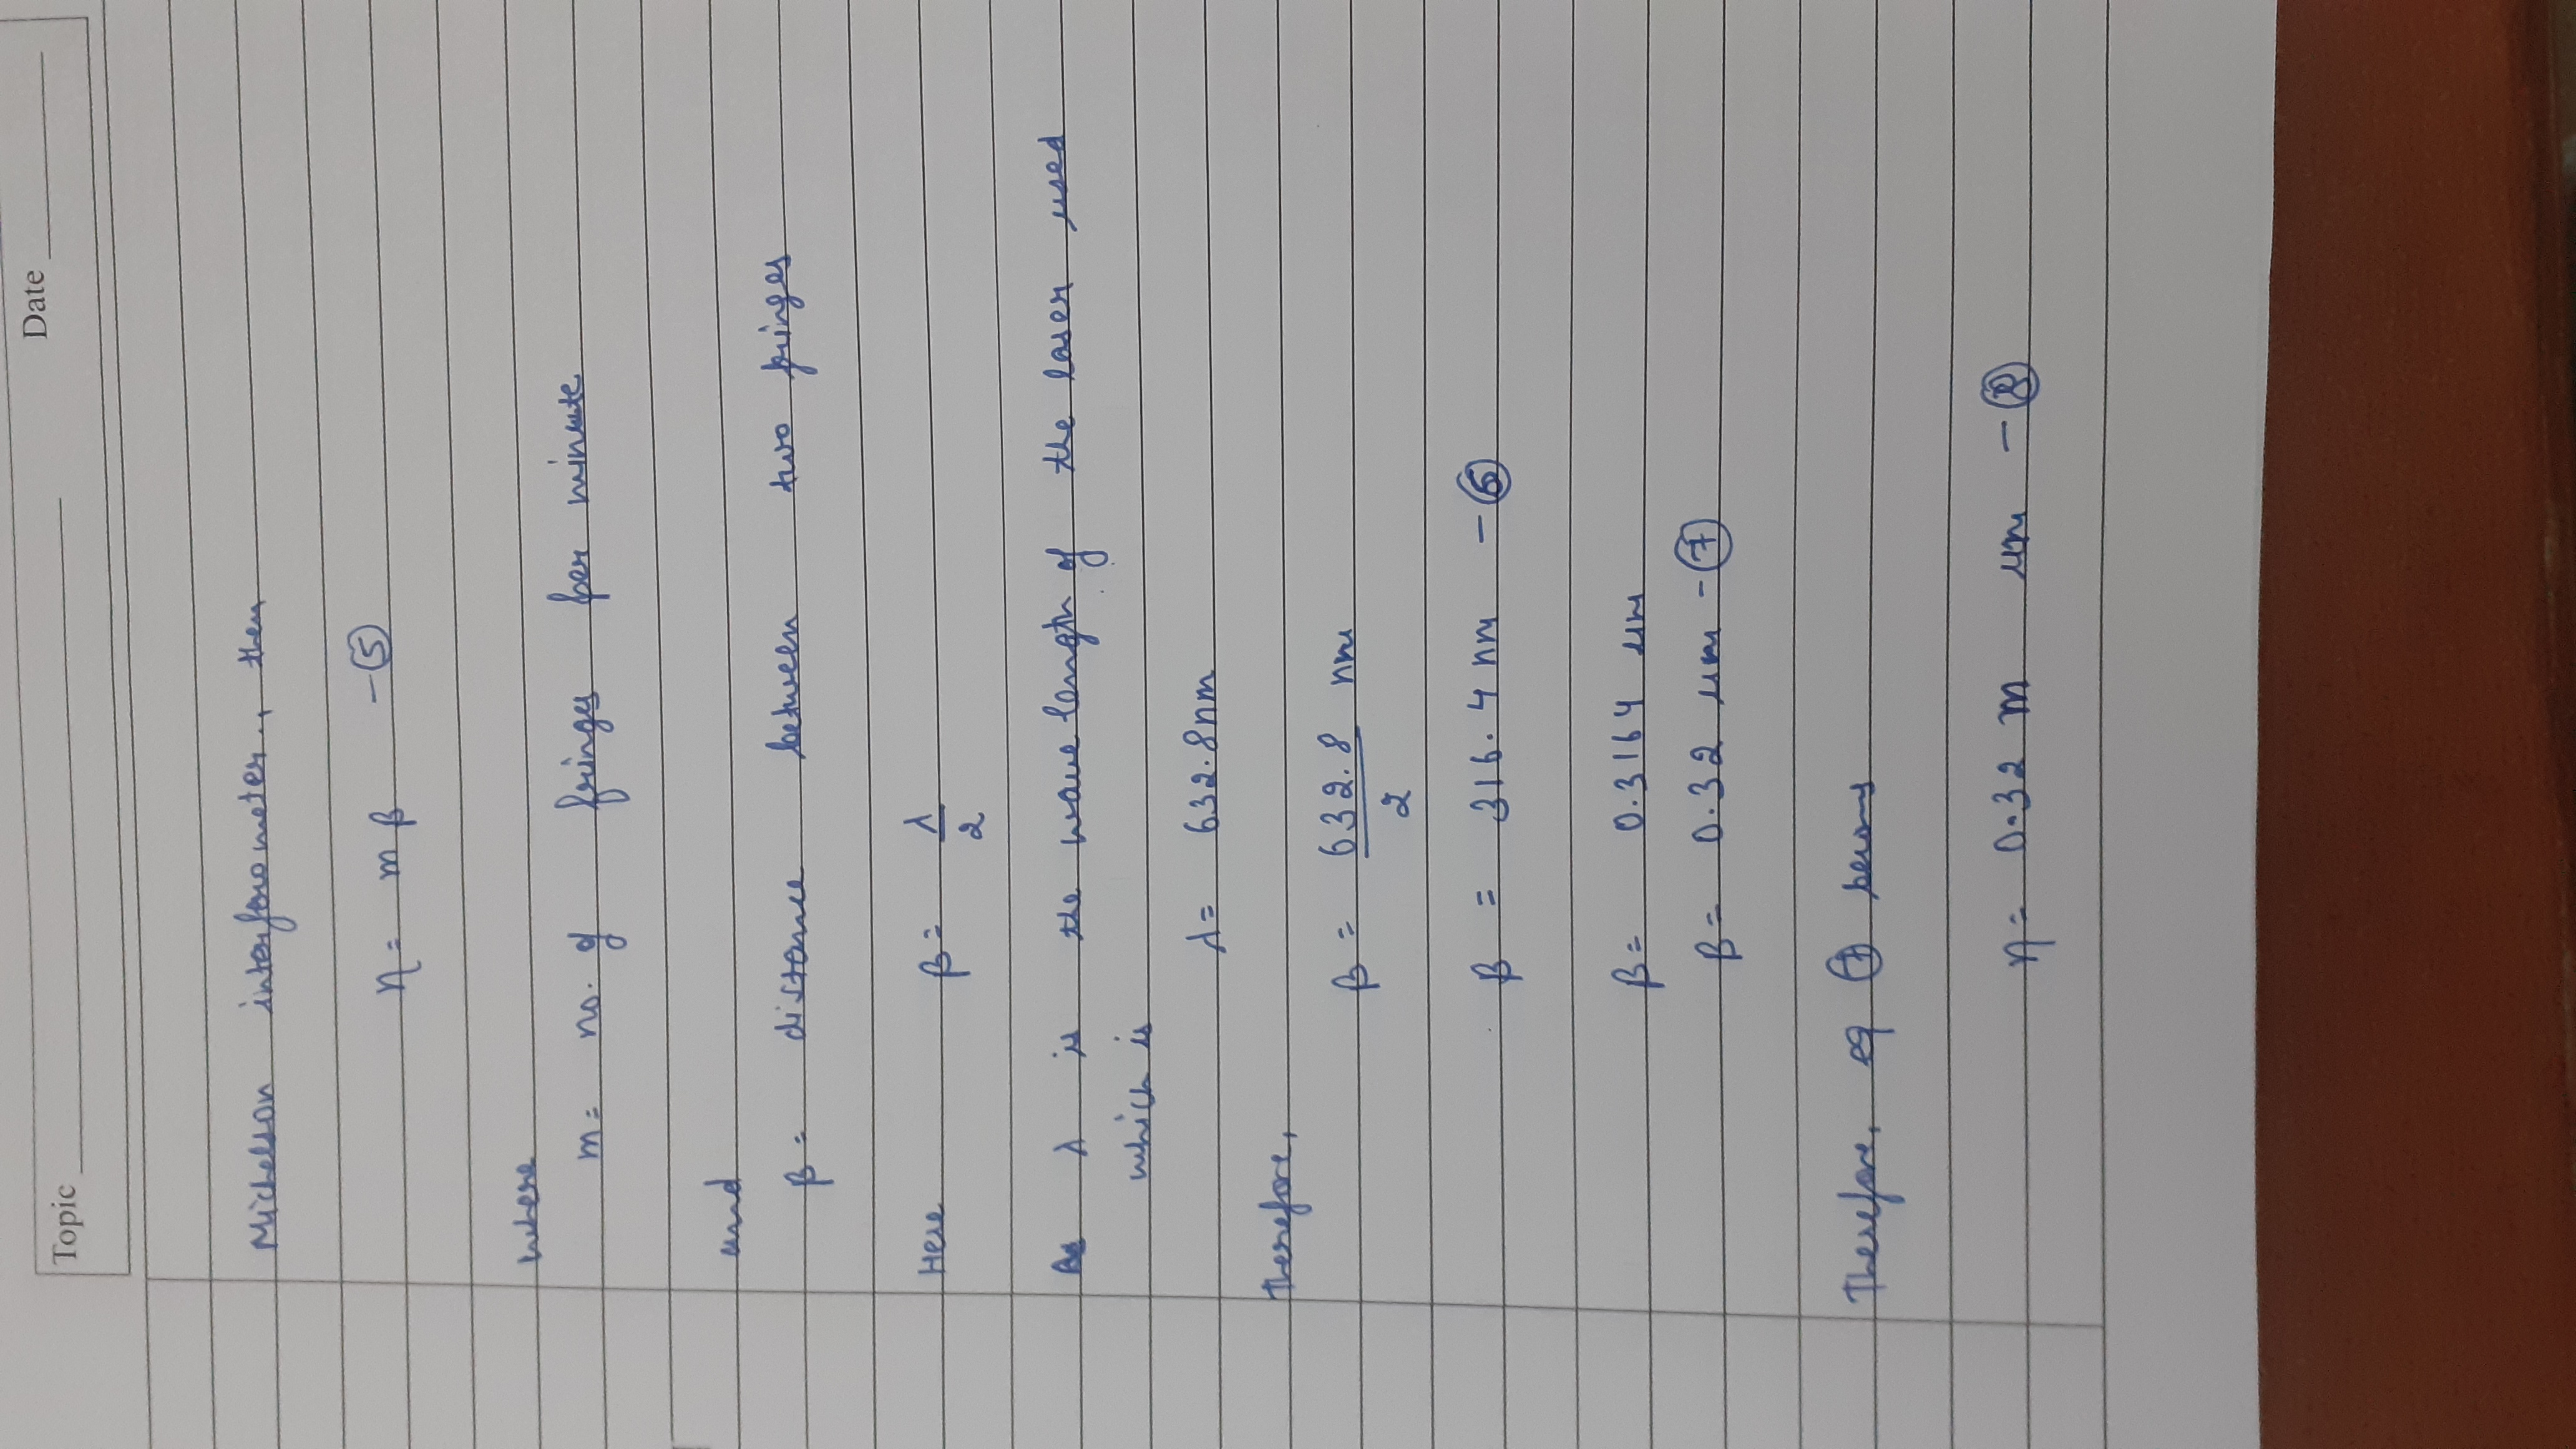 Topic
Date
Michelson interferometer, then
η = m β - ⑤
where
m = no. of fringes per minute
and
β = distance between two fringes
Here β = λ/2
As λ is the wavelength of the laser used
which is
λ = 632.8nm
Therefore,
β = 632.8/2 nm
β = 316.4 nm - ⑥
β = 0.3164 μm
β = 0.32 μm - ⑦
Therefore, eq ⑦
η = 0.32 m μm - ⑧